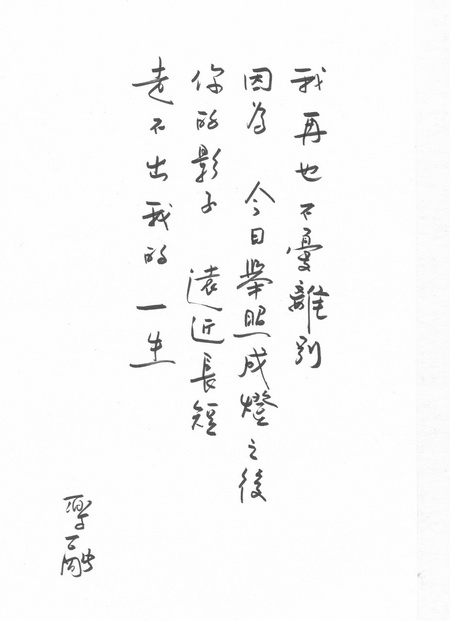 我再也不憂離別
因為 今日舉照成燈之後
你的影子 遠近長短
走不出我的一生